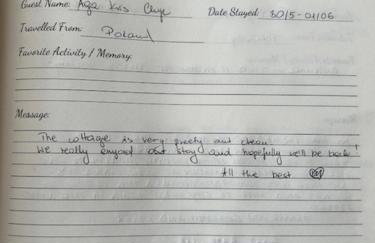 Guest Name: Aga Kris
Date Stayed: 30/5 - 01/06
Travelled From: Poland
Favorite Activity / Memory:
Message:
The cottage is very preety and clean.
We really enyoed out stay and hopefully we'll be back!
All the best